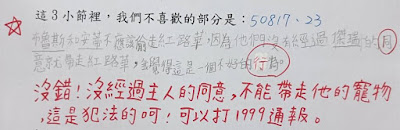 這3小節裡，我們不喜歡的部分是：50817、23
布魯斯和安蒂不應該偷走紅路華，因為他們沒有經過傑瑞的同
意就帶走紅路華，我覺得這是一個不好的行為。
沒錯！沒經過主人的同意，不能帶走他的寵物
，這是犯法的呵！可以打1999通報。